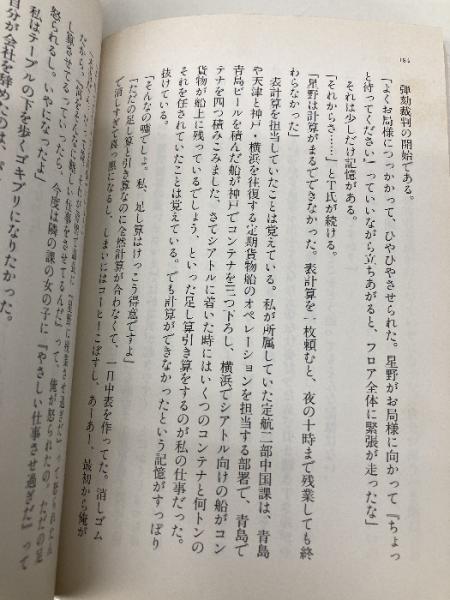 184
弾劾裁判の開始である。
「よくお局様につっかかって、ひやひやさせられた。星野がお局様に向かって『ちょっ
と待ってください』っていいながら立ちあがると、フロア全体に緊張が走ったな」
それは少しだけ記憶がある。
「それからさ……」とT氏が続ける。
「星野は計算がまるでできなかった。表計算を一枚頼むと、夜の十時まで残業しても終
わらなかった」
表計算を担当していたことは覚えている。私が所属していた定航二部中国課は、青島
や天津と神戸・横浜を往復する定期貨物船のオペレーションを担当する部署で、青島で
青島ビールを積んだ船が神戸でコンテナを三つ下ろし、横浜でシアトル向けの船がコン
テナを四つ積みこみました、さてシアトルに着いた時にはいくつのコンテナと何トンの
貨物が船上に残っているでしょう、といった足し算引き算をするのが私の仕事だった。
それを任されていたことは覚えている。でも計算ができなかったという記憶がすっぽり
抜けている。
「そんなの嘘でしょ。私、足し算はけっこう得意ですよ」
「ただの足し算と引き算なのに全然計算が合わなくて、一日中表を作ってた。消しゴム
で消しすぎて真っ黒になると、しまいにはコーヒーこぼすし、あーあ！ 最初から俺が
し算させてるっていったら、今度は隣の課の女の子に『やさしい仕事させ過ぎだ』って
怒られるし。いやになったよ」
私はテーブルの下を歩くゴキブリになりたかった。
自分が会社を辞めたのは、